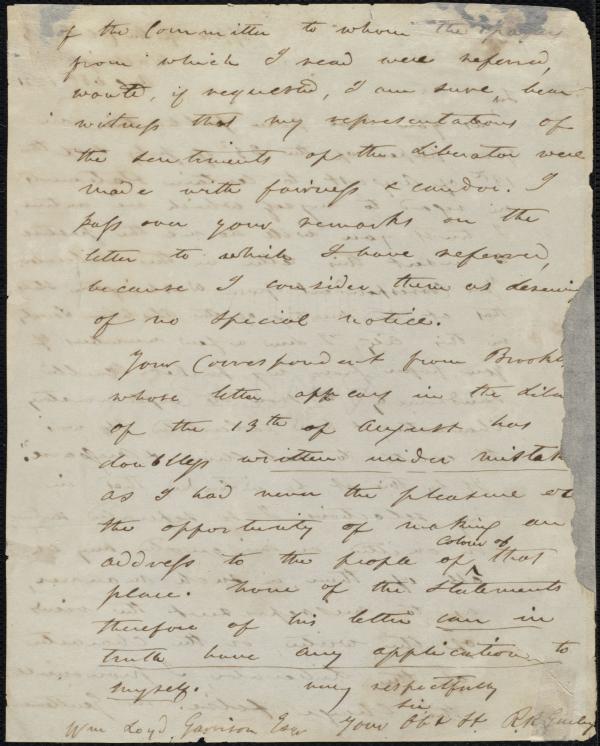 of the Committee to whom the papers
from which I read were referred,
would, if requested, I am sure, bear
witness that my representations of
the sentiments of the Liberator were
made with fairness & candor. I
pass over your remarks on the
letter to which I have referred,
because I consider them as deserving
of no special notice.
Your Correspondent from Brookl
whose letter appears in the Libe
of the 13th of August has
doubtless written under mistak
as I had never the pleasure or
the opportunity of making an
address to the people of Colour of that
place. None of the Statements
therefore of his letter can in
truth have any application to
myself. very respectfully
Sir
Wm Loyd Garrison Esqr Your Obt St. R.R. Gurley